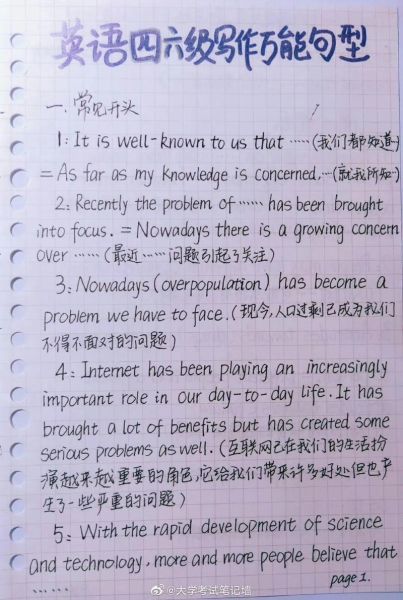 英语四六级写作万能句型
一.常见开头
1:It is well-known to us that ……(我们都知道…)
=As far as my knowledge is concerned,…(就我所知…)
2:Recently the problem of …… has been brought
into focus. =Nowadays there is a growing concern
over ……(最近……问题引起了关注)
3:Nowadays(overpopulation) has become a
problem we have to face.(现今,人口过剩已成为我们
不得不面对的问题)
4:Internet has been playing an increasingly
important role in our day-to-day life. It has
brought a lot of benefits but has created some
serious problems as well.(互联网已在我们的生活扮
演越来越重要的角色,它给我们带来许多好处但也产
生了一些严重的问题)
5:With the rapid development of science
and technology, more and more people believe that
……
page 1.
@大学考试笔记墙